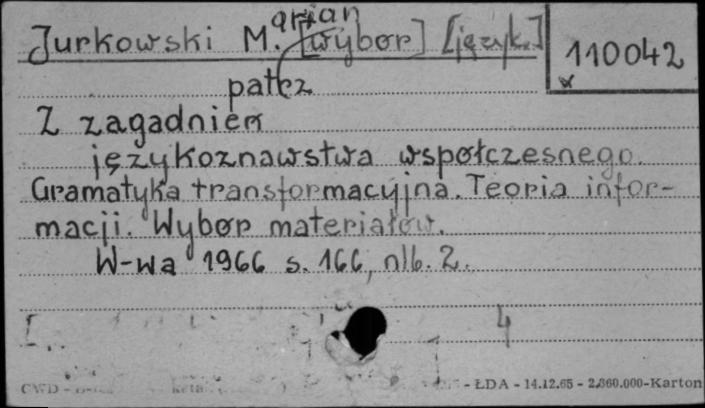 Jurkowski M.arian [wybór] [język.]
110042
patrz
Z zagadnień
językoznawstwa współczesnego.
Gramatyka transformacyjna. Teoria infor-
macji. Wybór materiałów.
W-wa 1966 s. 166, nlb. 2.
4
- ŁDA - 14.12.65 - 2.860.000-Karton